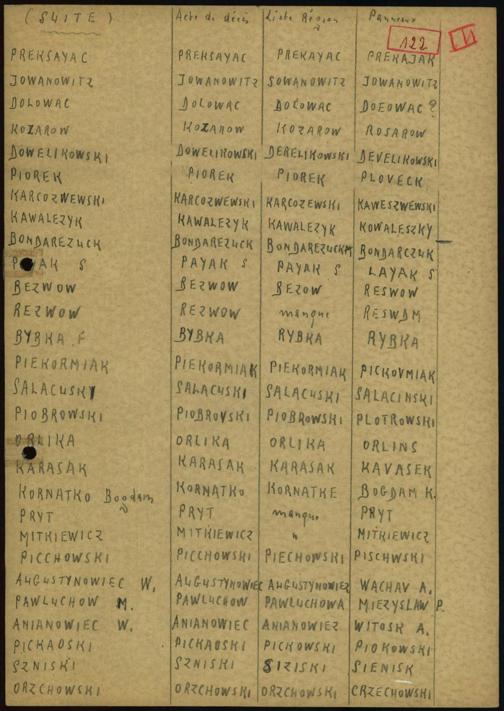 (SUITE) Acte de décès Liste Région Panneaux
122
PREKSAYAC PREKSAYAC PREKAYAC PREKAJAK
JOWANOWITZ JOWANOWITZ SOWANOWITZ JOWANOWITZ
DOLOWAC DOLOWAC DOLOWAC DOEOWAC?
KOZAROW KOZAROW KOZAROW ROSAROW
DOWELIKOWSKI DOWELIKOWSKI DERELIKOWSKI DEVELIKOWSKI
PIOREK PIOREK PIOREK PLOVECK
KARCOZWEWSKI KARCOZWEWSKI KARCOZEWSKI KAWESZWEWSKI
KAWALEZYK KAWALEZYK KAWALEZYK KOWALESZKY
BONDAREZUCK BONDAREZUCK BONDAREZUCKM BONDARCZUK
PAYAK S PAYAK S PAYAK S LAYAK S
BEZWOW BEZWOW BEZOW RESWOW
REZWOW REZWOW manque RESWDM
BYBKA F BYBKA RYBKA RYBKA
PIEKORMIAK PIEKORMIAK PIEKORMIAK PICKOVMIAK
SALACUSKY SALACUSKI SALACUSKI SALACINSKI
PIOBROWSKI PIOBROVSKI PIOBROWSKI PLOTROWSKI
ORLIKA ORLIKA ORLIKA ORLINS
KARASAK KARASAK KARASAK KAVASEK
KORNATKO Bogdam KORNATKO KORNATKE BOGDAM K.
PRYT PRYT manque PRYT
MITKIEWICZ MITKIEWICZ " MITKIEWICZ
PICCHOWSKI PICCHOWSKI PIECHOWSKI PISCHWSKI
AUGUSTYNOWIEC W. AUGUSTYNOWIEC AUGUSTYNOWIEZ WACHAV A.
PAWLUCHOW M. PAWLUCHOW PAWLUCHOWA MIEZYSLAW P.
ANIANOWIEC W. ANIANOWIEC ANIANOWIEZ WITOSK A.
PICKAOSKI PICKAOSKI PICKOWSKI PIOKOWSKI
SZNISKI SZNISKI SIZISKI SIENISK
ORZCHOWSKI ORZCHOWSKI ORZCHOWSKI CRZECHOWSKI